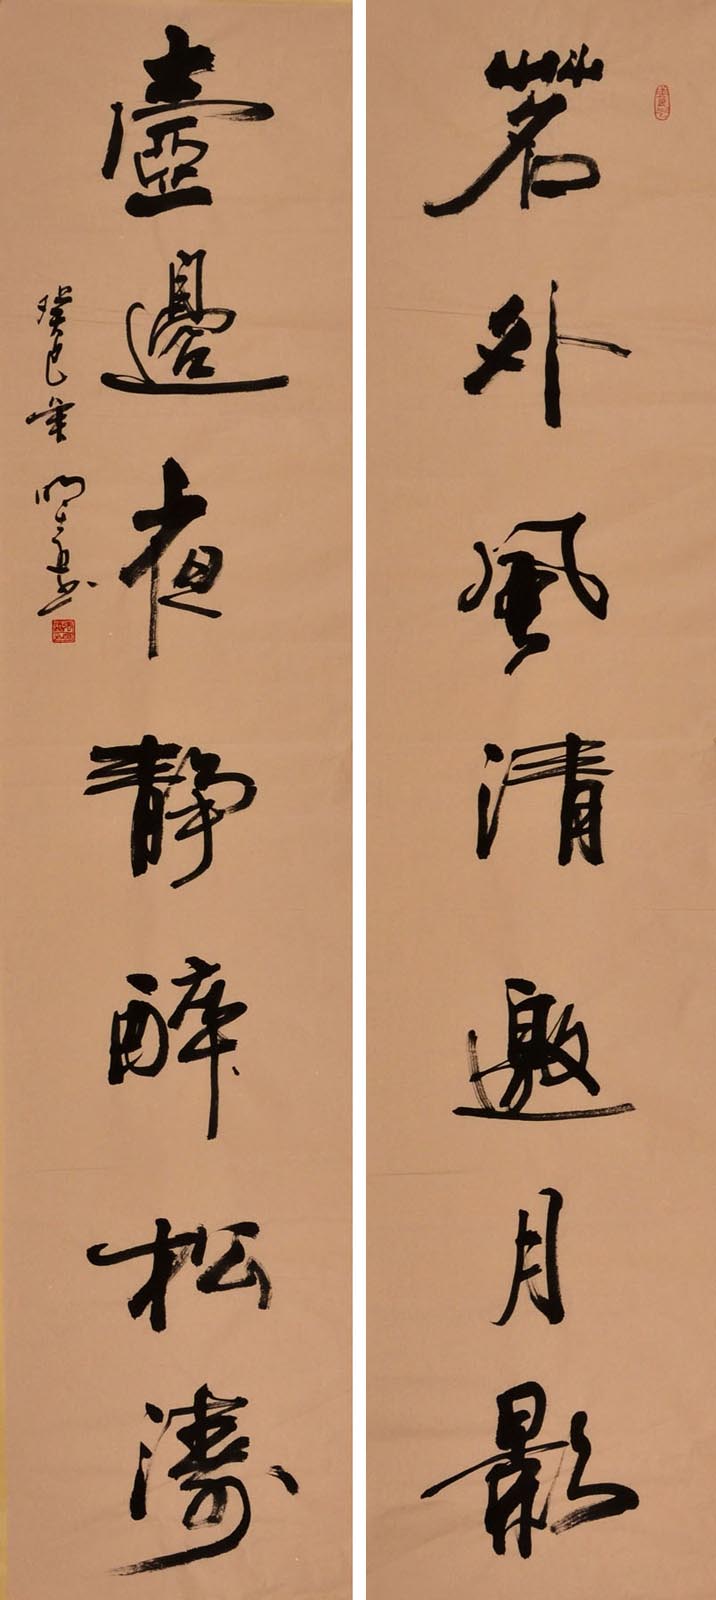 茗外風清邀月影
壺邊夜静醉松濤
癸巳年